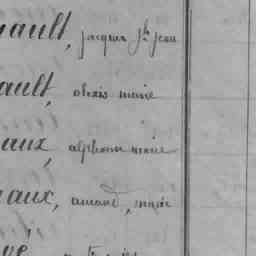 ault, jacques jh jean
ault, alexis marie
aux, alphonse marie
aux, amand, marie